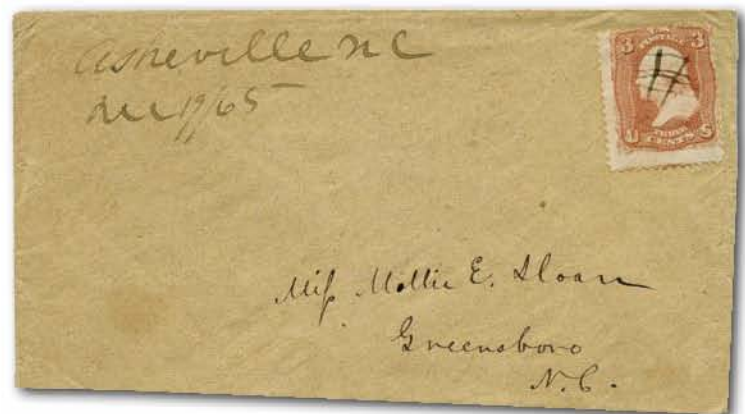 Asheville NC
Dec 19/65
3 3
U THREE S
CENTS
Miss Mollie E. Sloan
Greensboro
N.C.